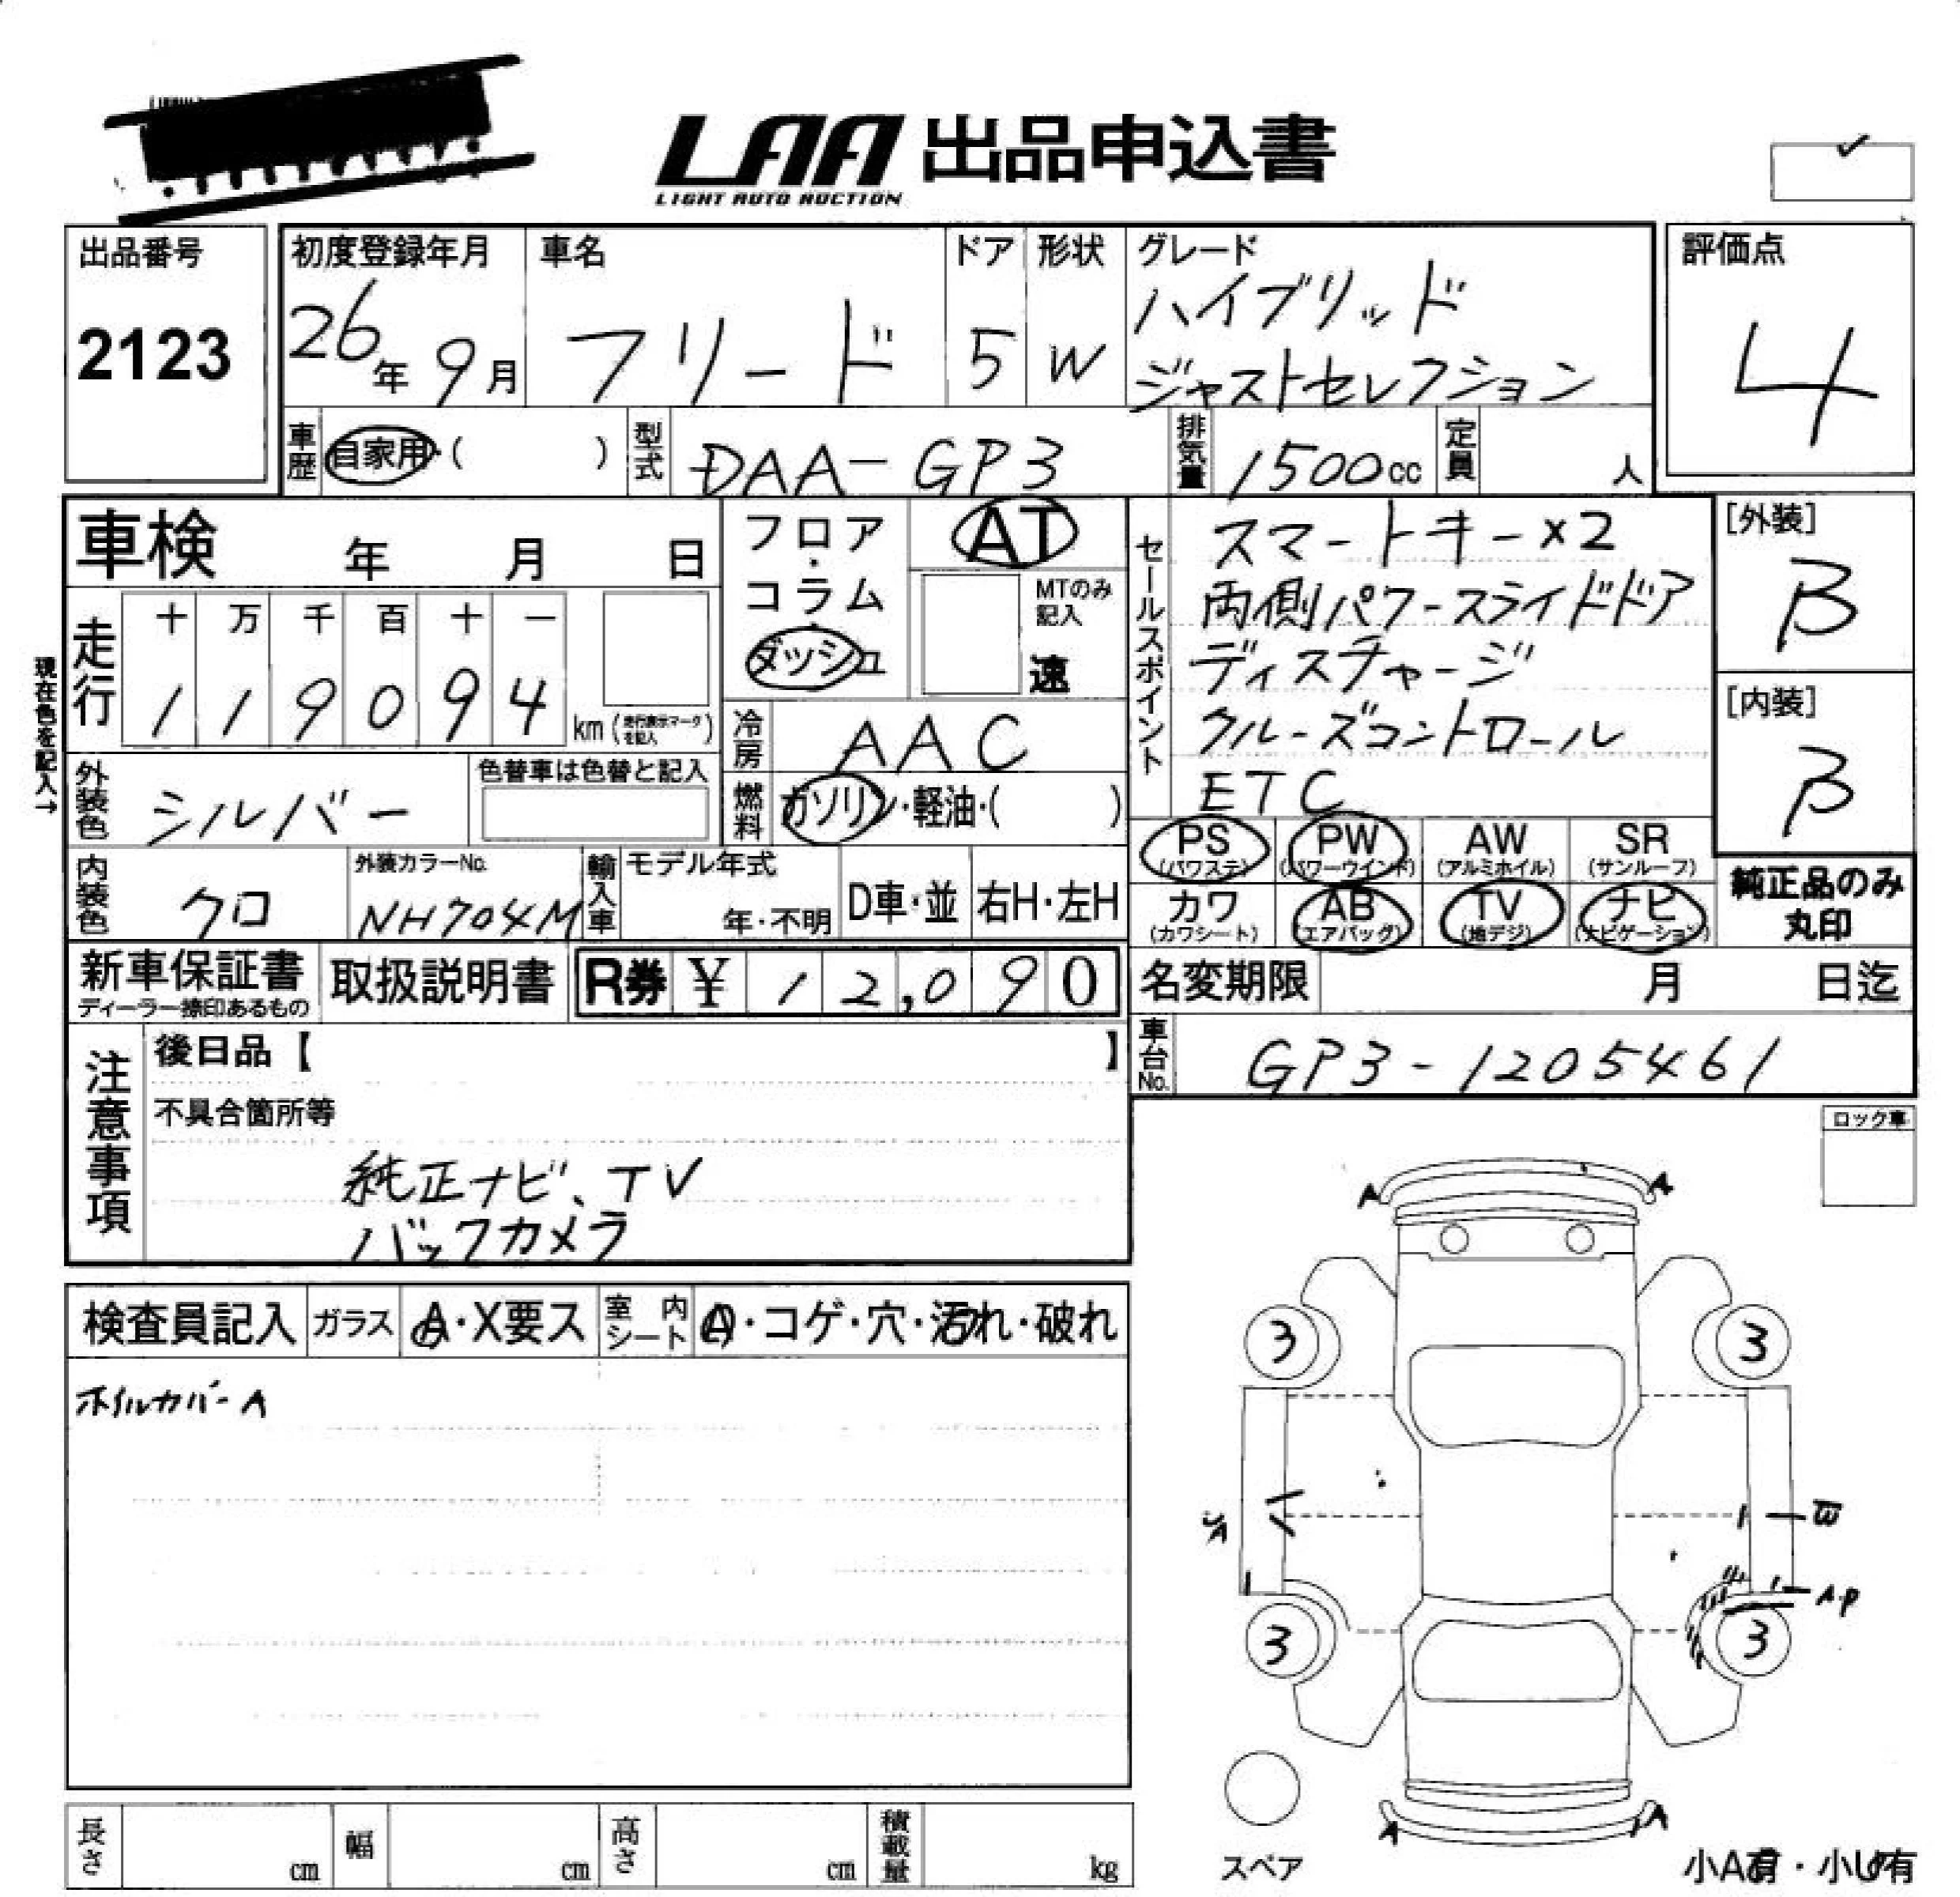 LAA 出品申込書
LIGHT AUTO AUCTION
出品番号
2123
初度登録年月
26年 9月
車名
フリード
ドア
5
形状
W
グレード
ハイブリッド
ジャストセレクション
評価点
4
車歴 自家用・( )
型式 DAA-GP3
排気量 1500cc
定員 人
車検 年 月 日
フロア・コラム・ダッシュ
AT
MTのみ記入
速
セールスポイント
スマートキー×2
両側パワースライドドア
ディスチャージ
クルーズコントロール
ETC
[外装]
B
[内装]
B
現在色を記入→
走行
十 万 千 百 十 一
1 1 9 0 9 4 km (走行表示マークを記入)
冷房 AAC
外装色 シルバー
色替車は色替と記入
燃料 ガソリン・軽油・( )
PS (パワステ) PW (パワーウインド) AW (アルミホイル) SR (サンルーフ)
カワ (カワシート) AB (エアバッグ) TV (地デジ) ナビ (ナビゲーション)
純正品のみ丸印
内装色 クロ
外装カラーNo.
NH704M
輸入車
モデル年式
年・不明
D車・並
右H・左H
新車保証書
ディーラー捺印あるもの
取扱説明書
R券 ¥ 12,090
名変期限 月 日迄
車台No. GP3-1205461
注意事項
後日品【 】
不具合箇所等
純正ナビ、TV
バックカメラ
ロック車
検査員記入 ガラス A・X要ス 室内シート A・コゲ・穴・汚れ・破れ
ホイルカバーA
A A
3 3
W
A.P
3 3
A A
スペア
長さ cm 幅 cm 高さ cm 積載量 kg
小A有・小U有